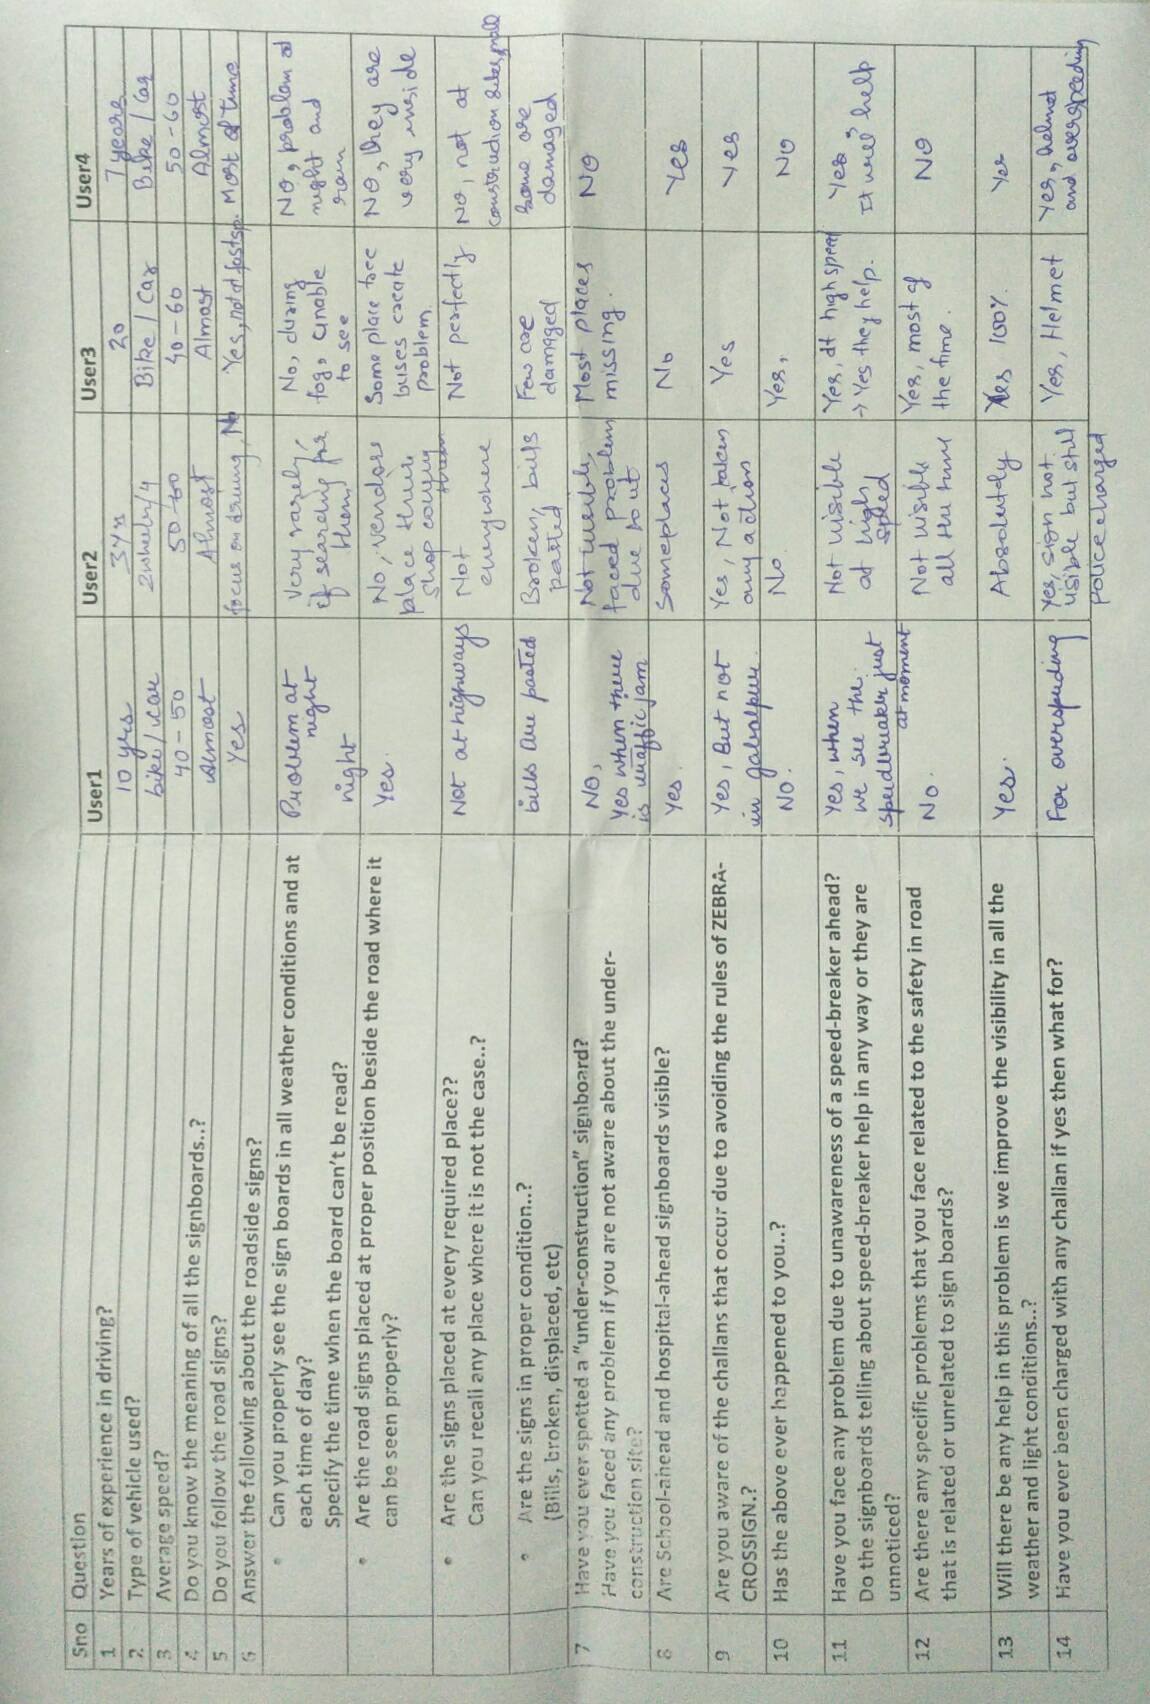 Sno Question User1 User2 User3 User4
1 Years of experience in driving? 10 yrs 3yrs 20 7 years
2 Type of vehicle used? bike/car 2wheeler/4 Bike / Car Bike / Car
3 Average speed? 40-50 50-60 40-60 50-60
4 Do you know the meaning of all the signboards..? Almost Almost Almost Almost
5 Do you follow the road signs? Yes focus on driving, No Yes, not at fastsp. Most of time
6 Answer the following about the roadside signs?
• Can you properly see the sign boards in all weather conditions and at
each time of day?
Specify the time when the board can't be read?
Problem at
night
night
Very rarely,
if searching for
them
No, during
fog, unable
to see
No, problem at
night and
rain
• Are the road signs placed at proper position beside the road where it
can be seen properly?
Yes.
No, vendors
place their
shop covering
them
Some place tree
buses create
problem.
No, they are
very inside
• Are the signs placed at every required place??
Can you recall any place where it is not the case..?
Not at highways
Not
everywhere
Not perfectly
No, not at
construction sites, mall
• Are the signs in proper condition..?
(Bills, broken, displaced, etc)
bills are pasted
Broken, bills
pasted
Few are
damaged
Some are
damaged
7 Have you ever spotted a "under-construction" signboard?
Have you faced any problem if you are not aware about the under-
construction site?
NO,
Yes when there
is traffic jam
Not visible,
faced problem
due to it
Most places
missing.
NO
8 Are School-ahead and hospital-ahead signboards visible?
Yes.
Someplaces
No
Yes
9 Are you aware of the challans that occur due to avoiding the rules of ZEBRA-
CROSSIGN.?
Yes, But not
in jabalpur.
Yes, Not taken
any action
Yes
Yes
10 Has the above ever happened to you..?
NO.
No.
Yes,
NO
11 Have you face any problem due to unawareness of a speed-breaker ahead?
Do the signboards telling about speed-breaker help in any way or they are
unnoticed?
Yes, when
we see the
speedbreaker just
at moment
Not visible
at high
speed
Yes, at high speed
→ Yes they help.
Yes,
It will help
12 Are there any specific problems that you face related to the safety in road
that is related or unrelated to sign boards?
No.
Not visible
all the time
Yes, most of
the time.
NO
13 Will there be any help in this problem is we improve the visibility in all the
weather and light conditions..?
Yes.
Absolutely
Yes 100%
Yes
14 Have you ever been charged with any challan if yes then what for?
For overspeeding
Yes, sign not
visible but still
police charged
Yes, Helmet
Yes, helmet
and overspeeding